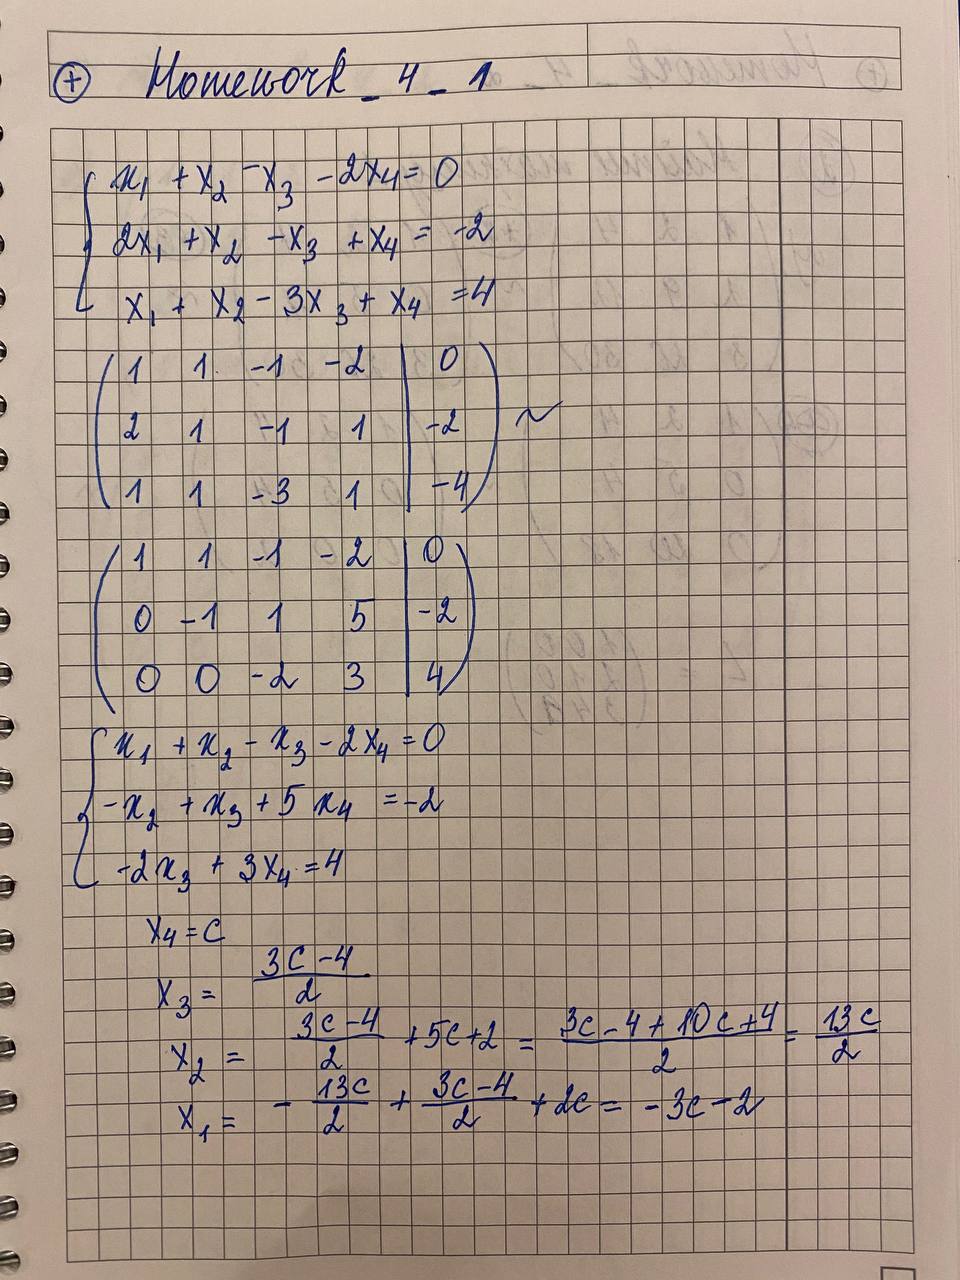 + Homework_4_1
x₁ + x₂ - x₃ - 2x₄ = 0
2x₁ + x₂ - x₃ + x₄ = -2
x₁ + x₂ - 3x₃ + x₄ = 4
1 1 -1 -2 | 0
2 1 -1 1 | -2 ~
1 1 -3 1 | -4
1 1 -1 -2 | 0
0 -1 1 5 | -2
0 0 -2 3 | 4
x₁ + x₂ - x₃ - 2x₄ = 0
-x₂ + x₃ + 5x₄ = -2
-2x₃ + 3x₄ = 4
x₄ = c
x₃ = (3c-4)/2
x₂ = (3c-4)/2 + 5c + 2 = (3c-4+10c+4)/2 = 13c/2
x₁ = - 13c/2 + (3c-4)/2 + 2c = -3c-2